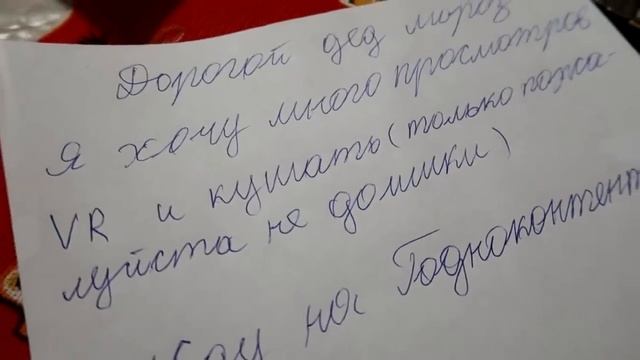 Дорогой дед мороз
Я хочу много просмотров
VR и кушать (только пожа-
луйста не домики)
на Годноконтент